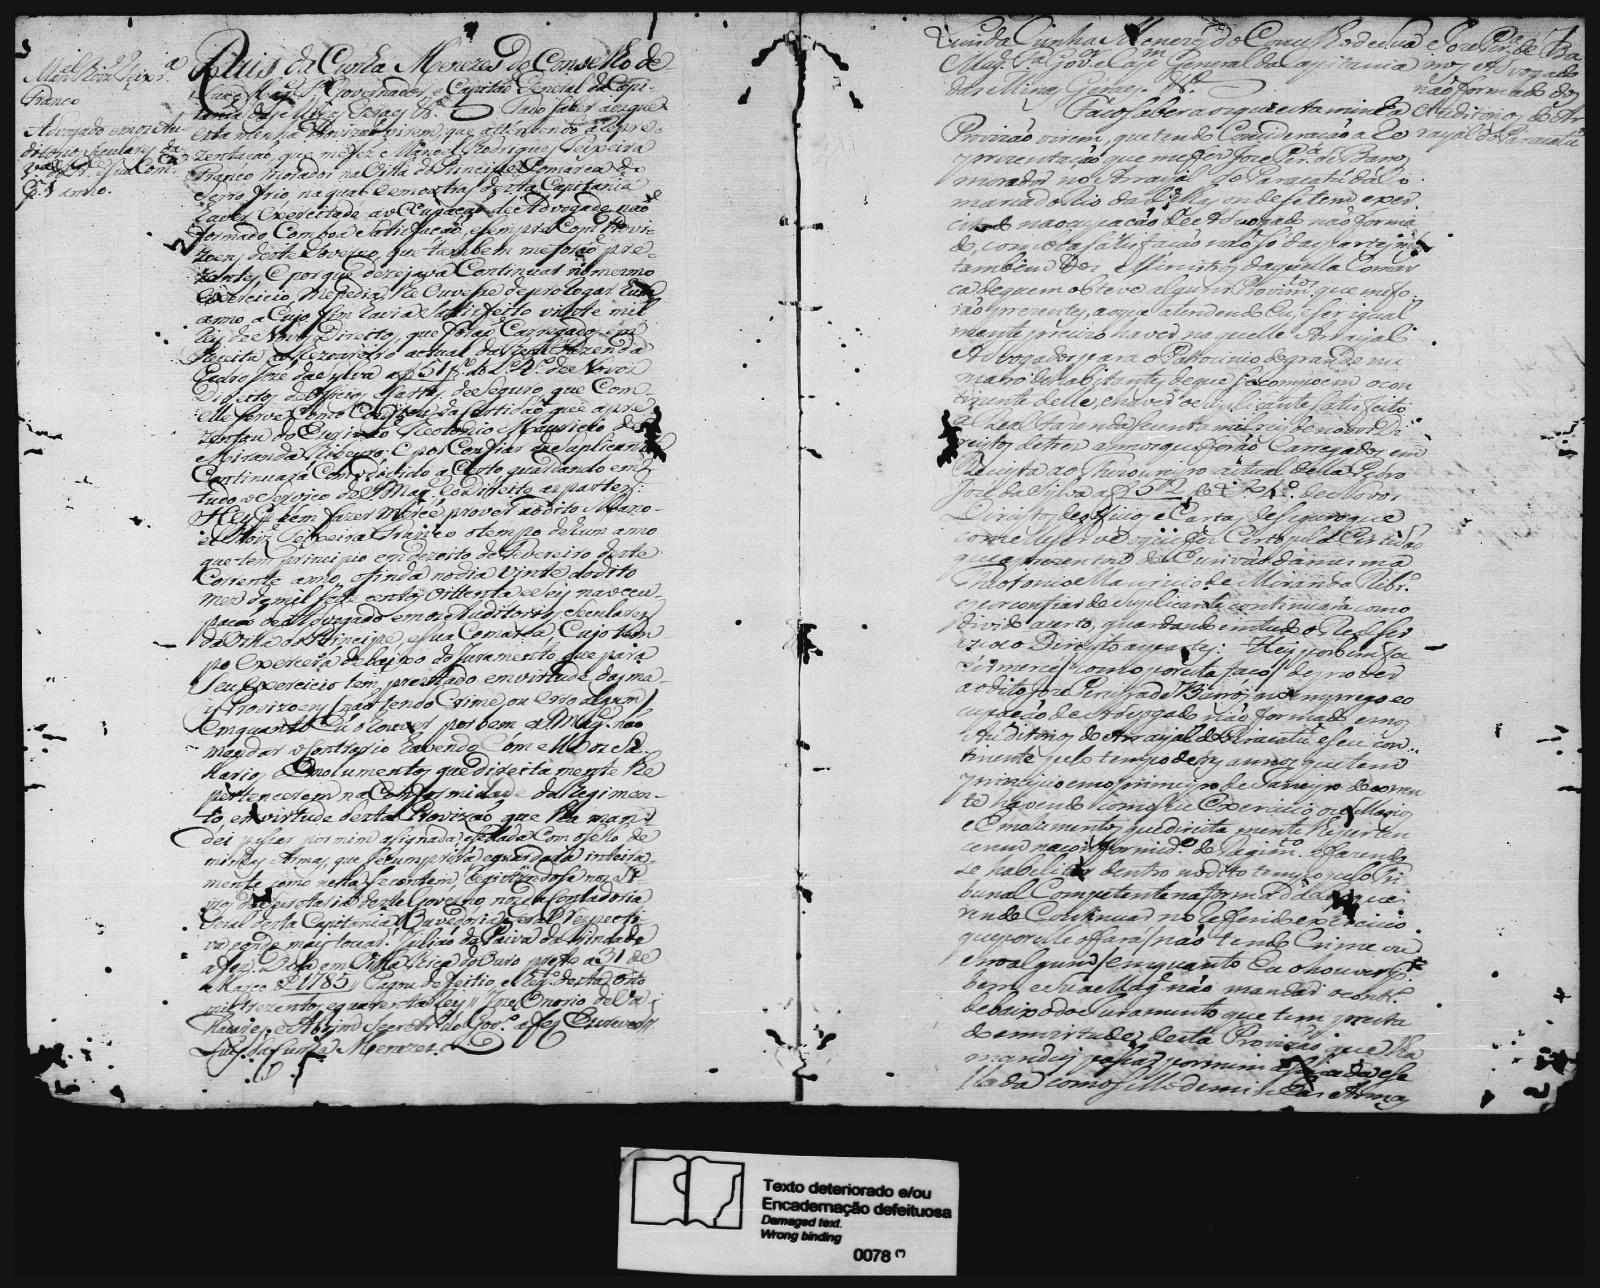 M.el Roiz Teix.ra
Franco
Advogado em os Au
ditorios seculares da
V.a do Pr.e e sua Com.ca
p.r 1 anno.
Luis da Cunha Menezes do Conselho de
Sua Mag.e Governador, e Capitão General da Capi-
tania de Minas Geraes &.a Faço saber aos que
esta minha Provizão virem, que attendendo a repre-
zentação, que me fez Manoel Rodrigues Teixeira
Franco morador na Villa do Principe Comarca do
Serro frio, na qual demostra desta Capitania
haver exercitado a ocupação de Advogado não
formado com boa satisfação, e sempre com Provi-
zoens deste Governo, que tambem me forão pre-
zentes, e porque dezejava continuar no mesmo
exercicio, me pedia, lhe ouvesse de prologar hum
anno a cujo fim havia satisfeito vinte mil
reis de Novo Direito, que forão carregados em
Receita ao Tezoureiro actual da Real Fazenda
Pedro José da Sylva a f 51 do L.o de Novos
Direitos de Officios, Cartas de Seguro, que com
elle serve como constou da Certidão que apre
zentou do Escrivão Theotonio Mauricio de
Miranda Ribeiro; e por confiar do Suplicante
continuará como devido a certo guardando em
tudo o serviço de S Mag.e e o Direito as partes:
Hey p.r bem fazer mercê prover ao dito Mano-
el Roiz Teixeira Franco o tempo de hum anno
que tem principio em dezoito de Fevereiro deste
corrente anno, e finda no dia vinte do dito
mez de mil sete centos e oittenta e seis na occu-
pação de Advogado em os Auditorios seculares
da Villa do Principe, e sua Comarca, cujo tem
po exercerá debaixo do Juramento, que para
seu exercicio tem prestado em virtude das ma-
is Provizoens, não tendo crime, ou erro algum
emquanto Eu o houver por bem e S Mag.e não
mandar o contrario havendo com elle os Sa-
larios, e Emolumentos que direita mente lhe
pertencerem na conformidade do Regimen-
to em virtude desta Provizão que lhe man-
dei passar por mim asignada, e sellada com o sello de
minhas Armas, que se cumprirá e guardará inteira
mente como nella se contem, registandose nos L.os
da Secretaria deste Governo, nos da Contadoria
Geral desta Capitania, e Ouvedoria Geral respecti-
va e onde mais tocar. Julião de Paiva da Trindade
a fez. Dada em Villa Rica do Ouro preto a 31 de
Março de 1785 // Pagou de feitio e reg.to desta oito
mil trezentos e quarenta reis // Joze Onorio de Va-
lladares e Aboim Secretr.o do Gov.o a fez escrever //
Luis da Cunha Menezes.
Luis da Cunha Menezes do Conselho de sua
Mag.e F.a Gov.or e Cap.m General da Capitania
das Minas Geraes. &.a
Faço saber aos que esta minha
Provizão virem, que tendo consideração a Re
prezentação que me fez Joze Per.a de Barros
morador no Arraial de Paracatú da Co
marca do Rio das Mortes, onde se tem exer
citado na ocupação de Advogado não forma
do, com boa satisfação não só das partes, mas
tambem dos Ministros daquella Comar
ca de quem obteve algumas Provim.tos que me fo
rão prezentes, ao que atendendo Eu, e ser igual
mente precizo haver naquelle Arrayal
Advogados para o Patrocinio de grande nu
mero de habitantes de que se compoem o con
tinente delle, e haver o suplicante satisfeito
á Real Fazenda secenta mil reis de novos Di-
reitos de tres annos que forão Carregados em
Receita ao Thezoureiro actual della Pedro
José da Silva a f 52 do L.o 1.o de Novos
Direitos de oficios e Cartas de seguro que
com elle serve como fez certo pela Certidão
que aprezentou do Escrivão da mesma
Theotonio Mauricio de Miranda Rib.ro
e por confiar do Suplicante continuará como
devido a certo, guardando em tudo o Real Ser
viço e o Direito as partes: Hey por bem fa
zer merce (como por esta faço) de prover
ao dito Joze Pereira de Barros no emprego e o
cupação de Advogado não formado em os
Auditorios do Arrayal de Paracatú e seu con
tinente pelo tempo de tres annos que tem
principio em o primeiro de Janeiro do corren
te havendo com o dito Exercicio os Salarios
e Emolumentos que direita mente lhe perten
cerem na conformid.e do Regim.to e fazendo
se habilitar dentro no dito tempo pelo Tri
bunal Competente na forma
rendo Continuar no refferido exercicio
que por elle o fará (não tendo Crime ou
erro algum) emquanto Eu o houver por
bem e Sua Mag.e não mandar o contr.o
debaixo do Juramento que tem presta
do em virtude desta Provizão que lhe
mandey passar por mim asignada e se
llada com o sello de minhas Armas
e Joze Per.a de Ba
rros Advogado
não formado dos
Auditorios do Ar
rayal de Paracatu
Texto deteriorado e/ou
Encadernação defeituosa
Damaged text.
Wrong binding
0078 (*)